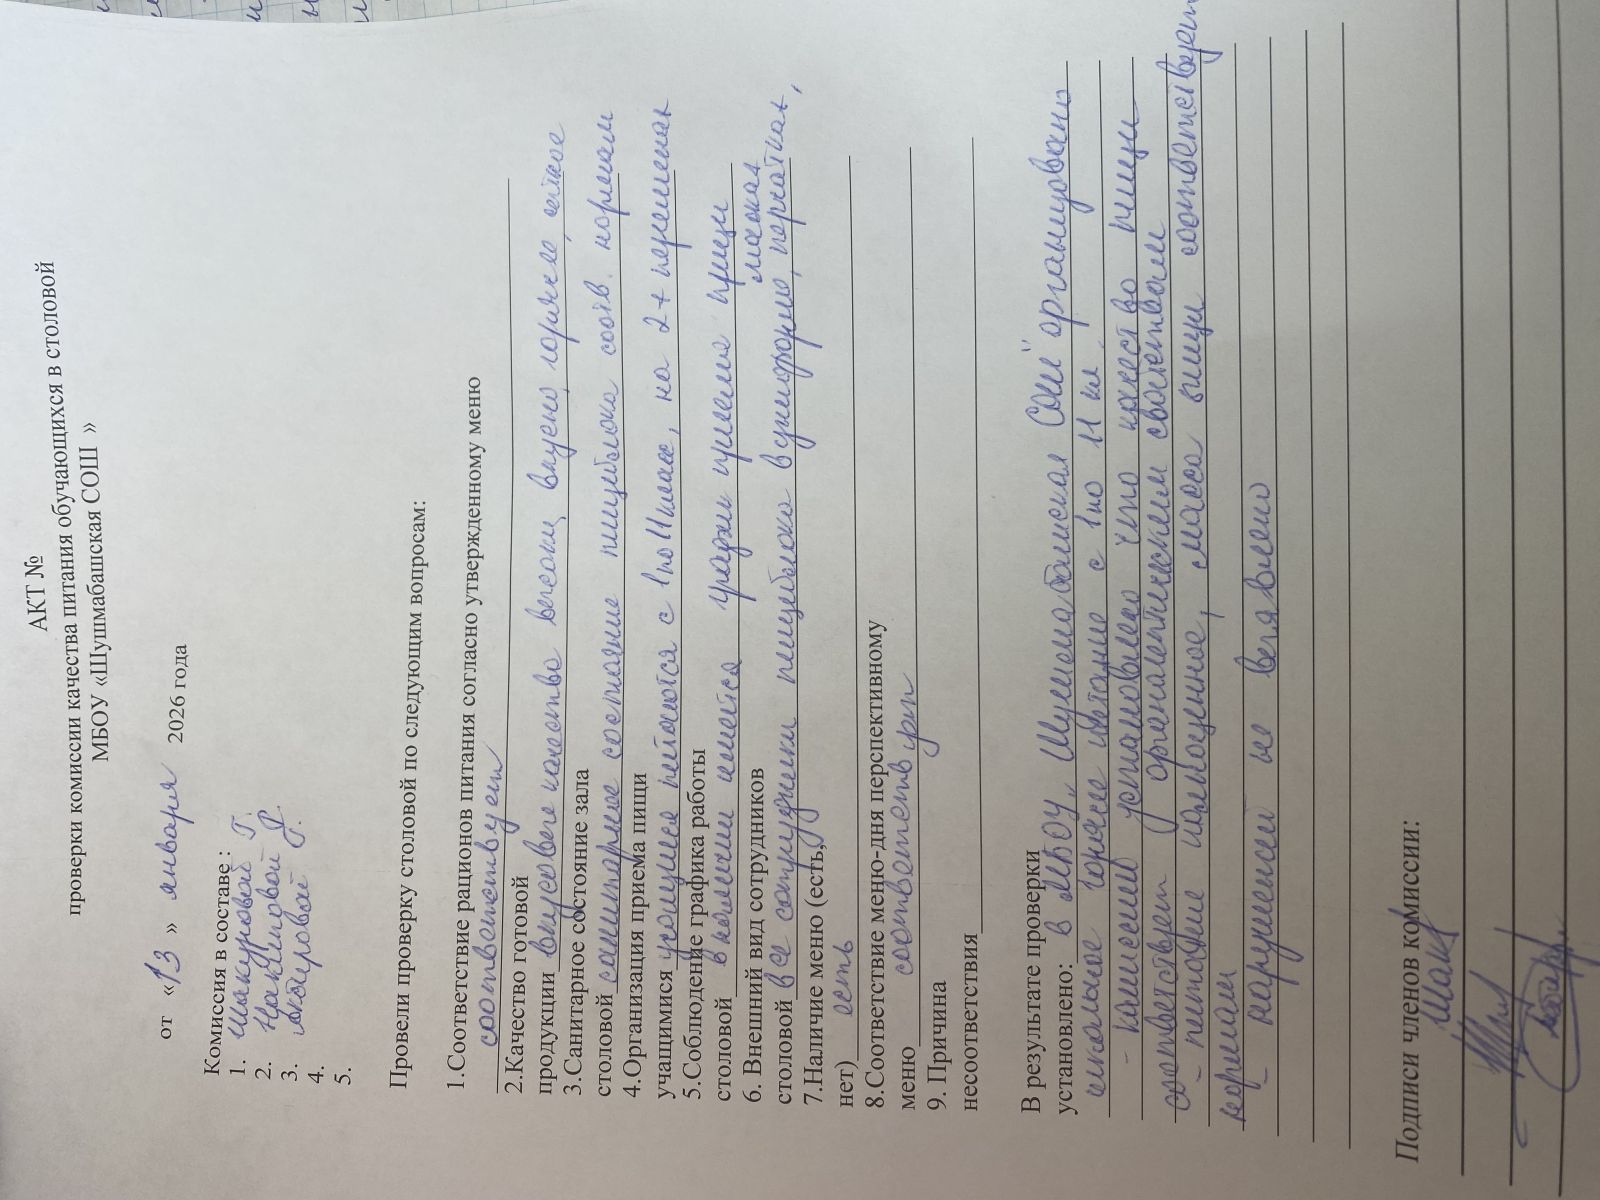 АКТ №
проверки комиссии качества питания обучающихся в столовой
МБОУ «Шушмабашская СОШ »
от «13 » января 2026 года
Комиссия в составе :
1. Шакуровой Г.
2. Накиповой Р.
3. Актировой
4.
5.
Провели проверку столовой по следующим вопросам:
1.Соответствие рационов питания согласно утвержденному меню
соответствует
2.Качество готовой
продукции вкусовое качество высокий, вкусно, горячее,
3.Санитарное состояние зала
столовой санитарное состояние пищеблока соотв. нормам
4.Организация приема пищи
учащимися учащиеся питаются с 1 по 11 класс, на 2х переменах
5.Соблюдение графика работы
столовой в наличии имеется график приема пищи
6. Внешний вид сотрудников
столовой все сотрудники пищеблока в униформе, перчатках, масках
7.Наличие меню (есть,
нет) есть
8.Соответствие меню-дня перспективному
меню соответствует
9. Причина
несоответствия
В результате проверки
установлено: в МБОУ „Шушмабашская СОШ" организовано
школьное горячее питание с 1 по 11 кл.
- комиссией установлено что качество пищи
соответствует органолептическим свойствам
- питание полноценное, масса пищи соответствует
нормам
- нарушений не выявлено
Подписи членов комиссии: